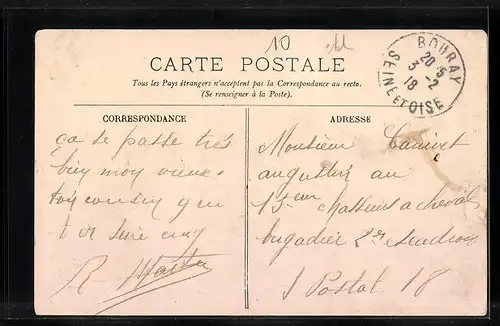 10
CARTE POSTALE
Tous les Pays étrangers n'acceptent pas la Correspondance au recto.
(Se renseigner à la Poste).
BOURAY
20 15
3 - 2
18
SEINE ET OISE
CORRESPONDANCE
ADRESSE
ça se passe tres
bien mon vieux
toi
R
Monsieur Canivet
augustin au
15eme chasseurs a cheval
brigadier 2e escadron
S Postal 18